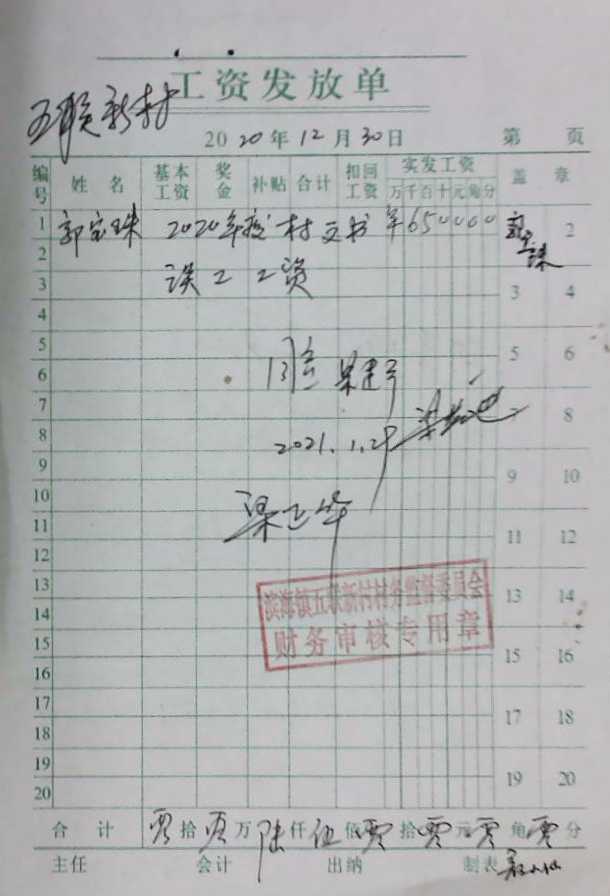 工资发放单
五联新村
2020年12月30日 第 页
编号 姓名 基本工资 奖金 补贴 合计 扣回工资 实发工资 盖章
万 千 百 十 元 角 分
1 郭宝珠 2020年度村文书 ¥650000 2
2
3 误工工资 3 4
4
5 5 6
6
7
8 2021.1.29 8
9
10 9 10
11
12 11 12
13 滨海镇五联新村村务监督委员会 13 14
14 财务审核专用章
15
16 15 16
17
18 17 18
19
20 19 20
合计 零拾 万陆仟伍佰零拾零元零角零分
主任 会计 出纳 制表